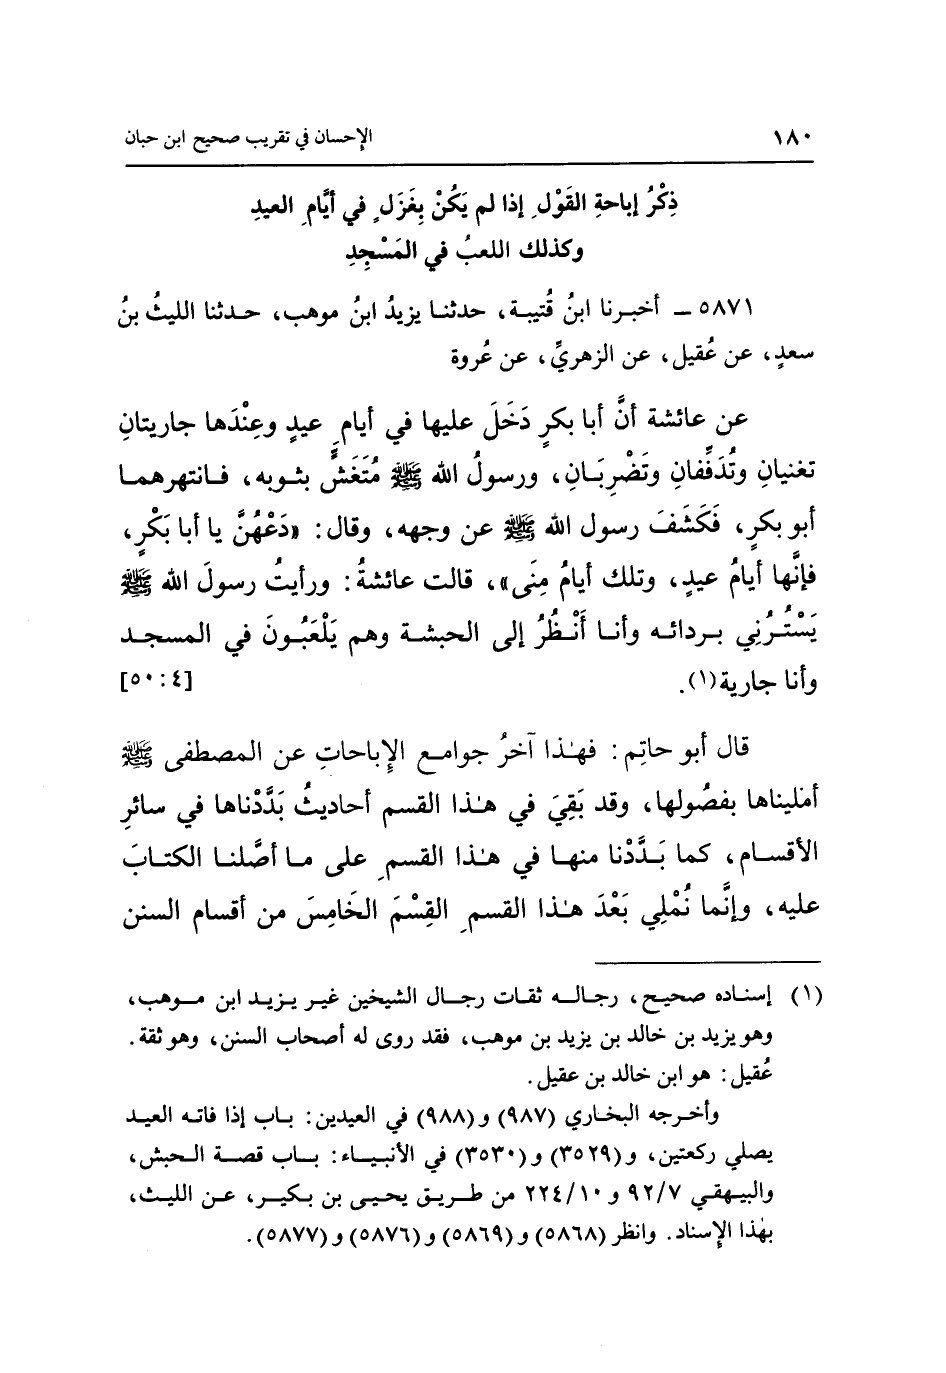 ١٨٠ الإحسان في تقريب صحيح ابن حبان
ذِكْرُ إباحةِ القَوْلِ إذا لم يَكُنْ بِغَزَلٍ في أيَّامِ العيدِ
وكذلك اللعبُ في المَسْجِدِ
٥٨٧١ ـ أخبرنا ابنُ قُتيبة، حدثنا يزيدُ ابنُ موهب، حدثنا الليثُ بنُ
سعدٍ، عن عُقيل، عن الزهريِّ، عن عُروة
عن عائشة أنَّ أبا بكرٍ دَخَلَ عليها في أيامِ عيدٍ وعِنْدَها جاريتانِ
تغنيانِ وتُدَفِّفانِ وتَضْرِبَانِ، ورسولُ الله ﷺ مُتَغَشٍّ بثوبه، فانتهرهما
أبو بكرٍ، فَكَشَفَ رسول الله ﷺ عن وجهه، وقال: «دَعْهُنَّ يا أبا بَكْرٍ،
فإنَّها أيامُ عيدٍ، وتلك أيامُ مِنَى»، قالت عائشةُ: ورأيتُ رسولَ الله ﷺ
يَسْتُرُني بردائه وأنا أَنْظُرُ إلى الحبشة وهم يَلْعَبُونَ في المسجد
وأنا جارية(١). [٥٠:٤]
قال أبو حاتِم: فهٰذا آخرُ جوامع الإباحاتِ عن المصطفى ﷺ
أمليناها بفصُولها، وقد بَقِيَ في هٰذا القسم أحاديثُ بَدَّدْناها في سائرِ
الأقسام، كما بَدَّدْنا منها في هٰذا القسمِ على ما أصَّلنا الكتابَ
عليه، وإنَّما نُمْلِي بَعْدَ هٰذا القسمِ القِسْمَ الخَامِسَ من أقسام السنن
(١) إسناده صحيح، رجاله ثقات رجال الشيخين غير يزيد ابن موهب،
وهو يزيد بن خالد بن يزيد بن موهب، فقد روى له أصحاب السنن، وهو ثقة.
عُقيل: هو ابن خالد بن عقيل.
وأخرجه البخاري (٩٨٧) و(٩٨٨) في العيدين: باب إذا فاته العيد
يصلي ركعتين، و(٣٥٢٩) و(٣٥٣٠) في الأنبياء: باب قصة الحبش،
والبيهقي ٩٢/٧ و ٢٢٤/١٠ من طريق يحيى بن بكير، عن الليث،
بهٰذا الإسناد. وانظر (٥٨٦٨) و(٥٨٦٩) و(٥٨٧٦) و(٥٨٧٧).